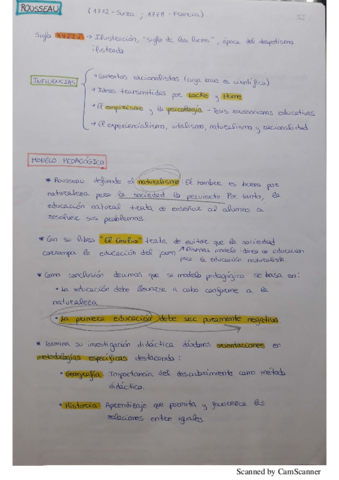 ROUSSEAU (1712 - Suiza ; 1778 - Francia)
Siglo XVIII → Ilustración, "siglo de las luces", época del despotismo
ilustrado
INFLUENCIAS
• Corrientes racionalistas (cuya base es científica)
• Ideas transmitidas por Locke y Hume
• El empirismo y la psicología - Tesis educativos
• El experiencialismo, vitalismo, naturalismo y racionalidad
MODELO PEDAGÓGICO
* Rousseau defiende el naturalismo. El hombre es bueno por
naturaleza pero la sociedad lo pervierte. Por tanto, la
educación natural trata de enseñar al alumno a
resolver sus problemas.
* Con su libro "El Emilio" trata de evitar que la sociedad
corrompa la educación del joven modelo de educación
la educación naturalista
* Como conclusión decimos que su modelo pedagógico se basa en:
• La educación debe llevarse a cabo conforme a la
naturaleza
• La primera educación debe ser puramente negativa
* Realiza su investigación didáctica dándole orientaciones en
metodologías específicas destacando:
• Geografía: Importancia del descubrimiento como método
didáctico.
• Historia: Aprendizaje que permita y favorezca las
relaciones entre iguales
Scanned by CamScanner